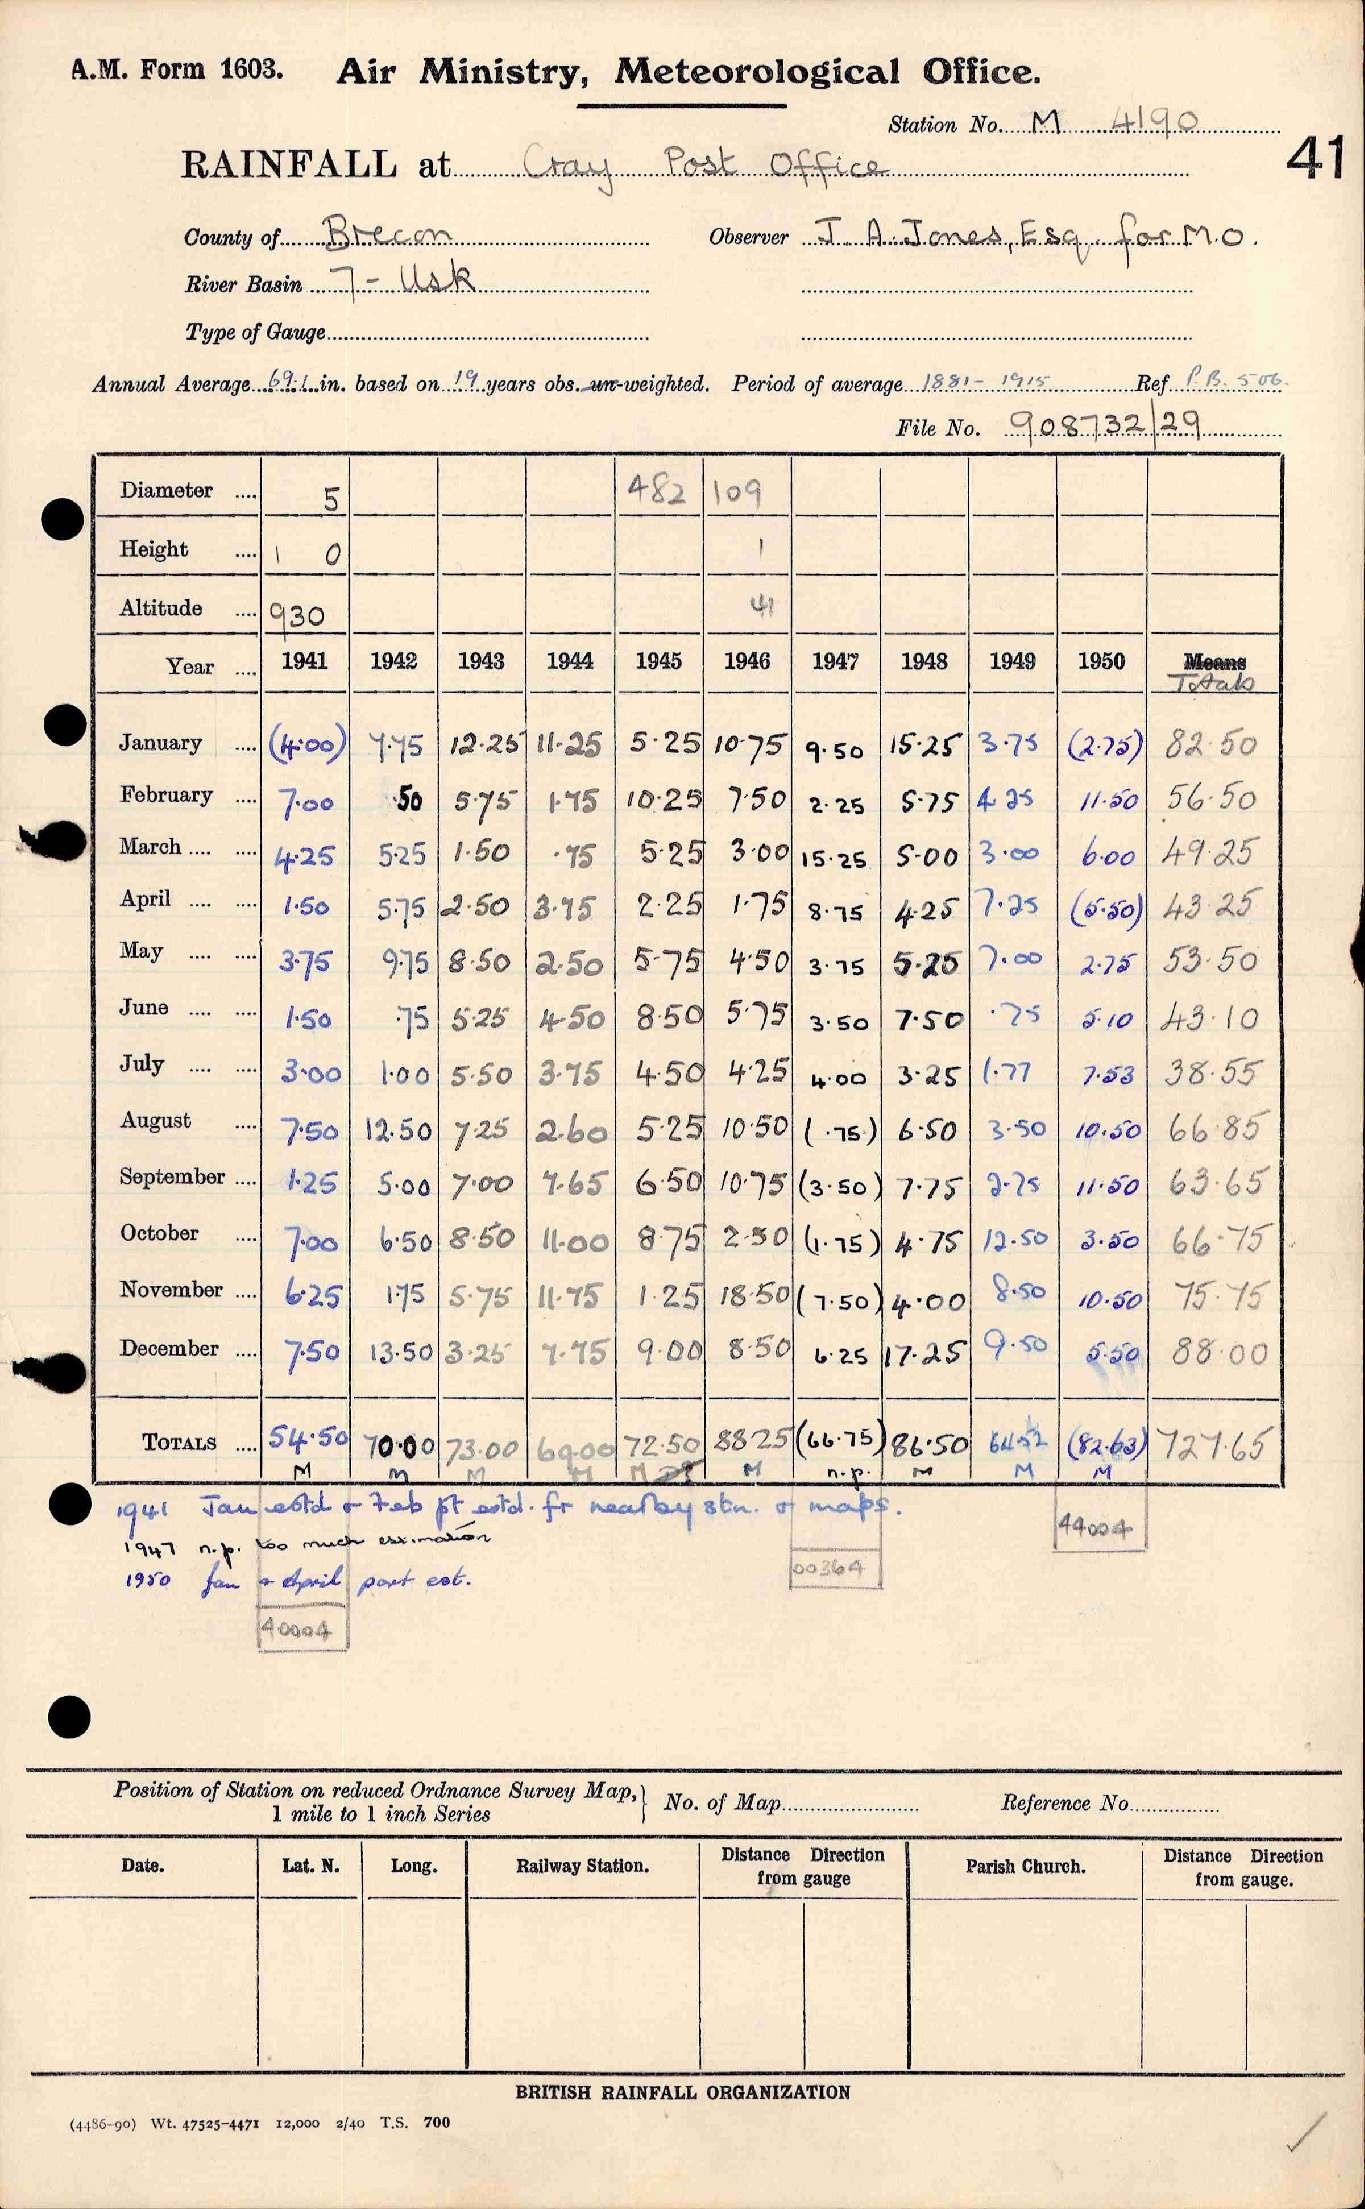 A.M. Form 1603. Air Ministry, Meteorological Office.
Station No. M 4190
41
RAINFALL at Cray Post Office
County of Brecon Observer J. A. Jones, Esq. for M.O.
River Basin 7 - Usk
Type of Gauge
Annual Average 69.1 in. based on 19 years obs. un-weighted. Period of average 1881-1915 Ref P.B. 506.
File No. 908732/29
Diameter .... 5 482 109
Height .... 1 0 1
Altitude .... 930 41
Year .... 1941 1942 1943 1944 1945 1946 1947 1948 1949 1950 Means
Totals
January .... (4.00) 7.75 12.25 11.25 5.25 10.75 9.50 15.25 3.75 (2.75) 82.50
February .... 7.00 .50 5.75 1.75 10.25 7.50 2.25 5.75 4.25 11.50 56.50
March .... .... 4.25 5.25 1.50 .75 5.25 3.00 15.25 5.00 3.00 6.00 49.25
April .... .... 1.50 5.75 2.50 3.75 2.25 1.75 8.75 4.25 7.25 (5.50) 43.25
May .... .... 3.75 9.75 8.50 2.50 5.75 4.50 3.75 5.25 7.00 2.75 53.50
June .... .... 1.50 .75 5.25 4.50 8.50 5.75 3.50 7.50 .75 5.10 43.10
July .... .... 3.00 1.00 5.50 3.75 4.50 4.25 4.00 3.25 1.77 7.53 38.55
August .... 7.50 12.50 7.25 2.60 5.25 10.50 (.75) 6.50 3.50 10.50 66.85
September .... 1.25 5.00 7.00 7.65 6.50 10.75 (3.50) 7.75 2.75 11.50 63.65
October .... 7.00 6.50 8.50 11.00 8.75 2.50 (1.75) 4.75 12.50 3.50 66.75
November .... 6.25 1.75 5.75 11.75 1.25 18.50 (7.50) 4.00 8.50 10.50 75.75
December .... 7.50 13.50 3.25 7.75 9.00 8.50 6.25 17.25 9.50 5.50 88.00
TOTALS .... 54.50 70.00 73.00 69.00 72.50 88.25 (66.75) 86.50 64.52 (82.63) 727.65
M M M M M M n.p. M M M
1941 Jan estd & Feb pt estd. fr nearby stn. & maps.
44004
1947 n.p. too much estimation
00364
1950 Jan & April part est.
40004
Position of Station on reduced Ordnance Survey Map, 1 mile to 1 inch Series } No. of Map Reference No.
Date. Lat. N. Long. Railway Station. Distance Direction from gauge Parish Church. Distance Direction from gauge.
BRITISH RAINFALL ORGANIZATION
(4486-90) Wt. 47525-4471 12,000 2/40 T.S. 700